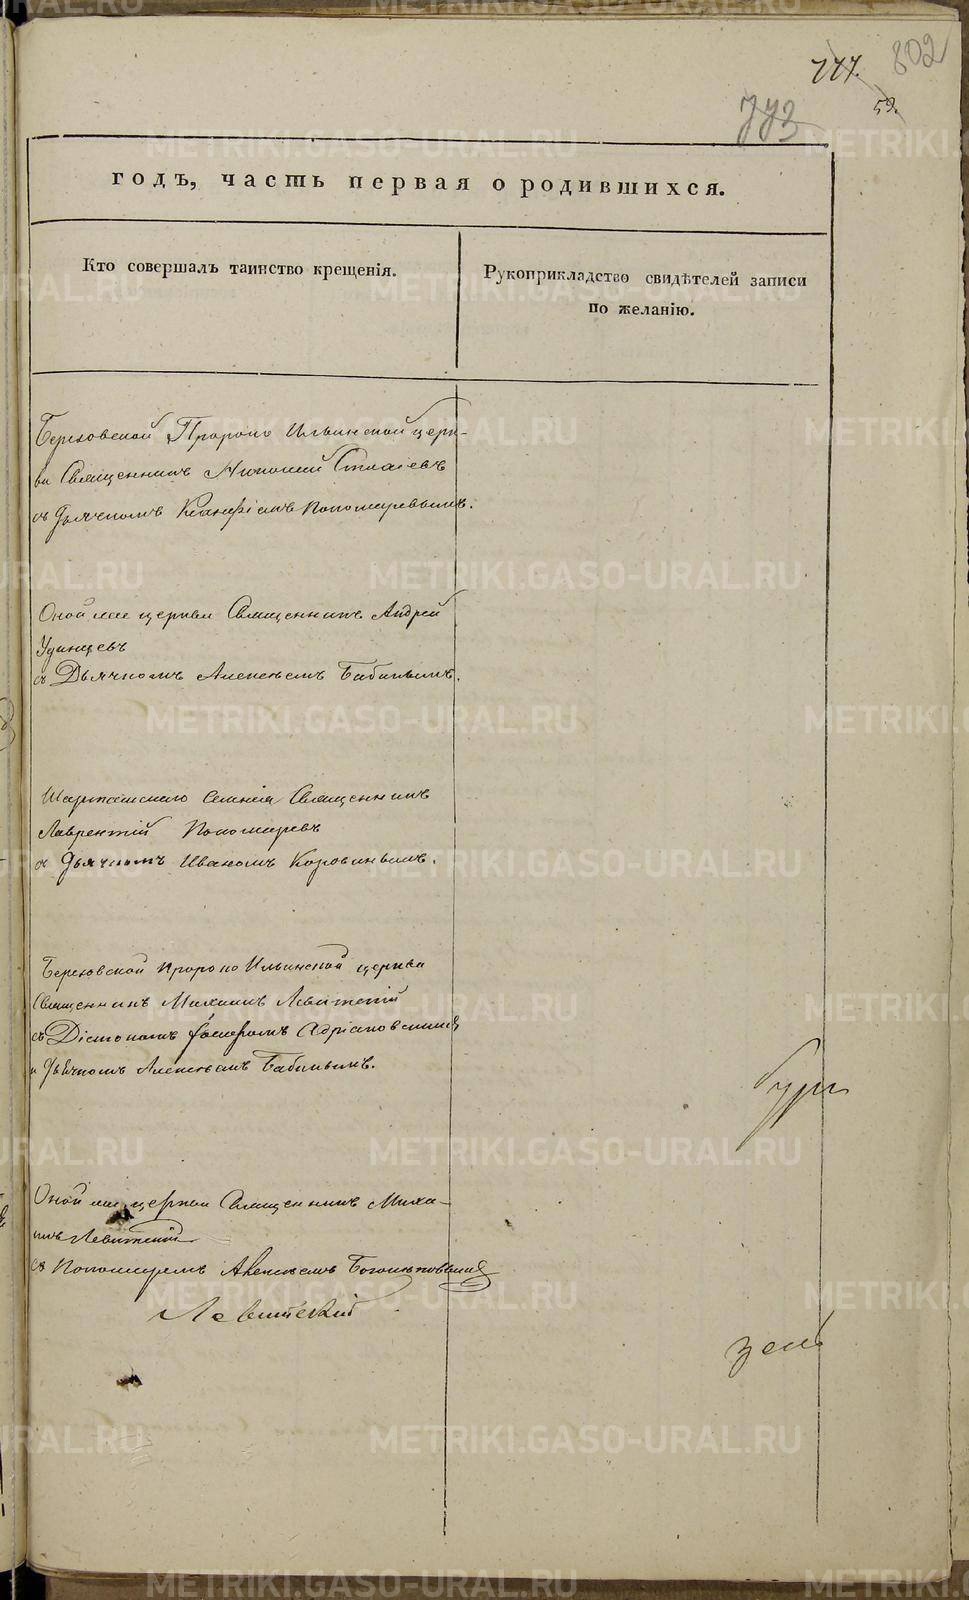 802
777.
59.
773
годъ, часть первая о родившихся.
Кто совершалъ таинство крещенія.
Рукоприкладство свидѣтелей записи
по желанію.
Березовской Пророко Ильинской церк-
ви Священникъ Стахіевъ
съ Дьячкомъ Ксанфіемъ Пономаревымъ.
Оной же церкви Священникъ Андрей
Удинцевъ
съ Дьячкомъ Алексѣемъ Бабинымъ.
Шарташскаго селенія Священникъ
Лаврентій Пономаревъ
съ Дьячкомъ Иваномъ Коровинымъ.
Березовской Пророко Ильинской церкви
Священникъ Михаилъ Левитскій
съ Діакономъ Адріановскимъ
и Дьячкомъ Алексѣемъ Бабинымъ.
Оной же церкви Священникъ Миха-
илъ Левитскій
съ Пономаремъ Алексѣемъ
Левитскій
METRIKI.GASO-URAL.RU